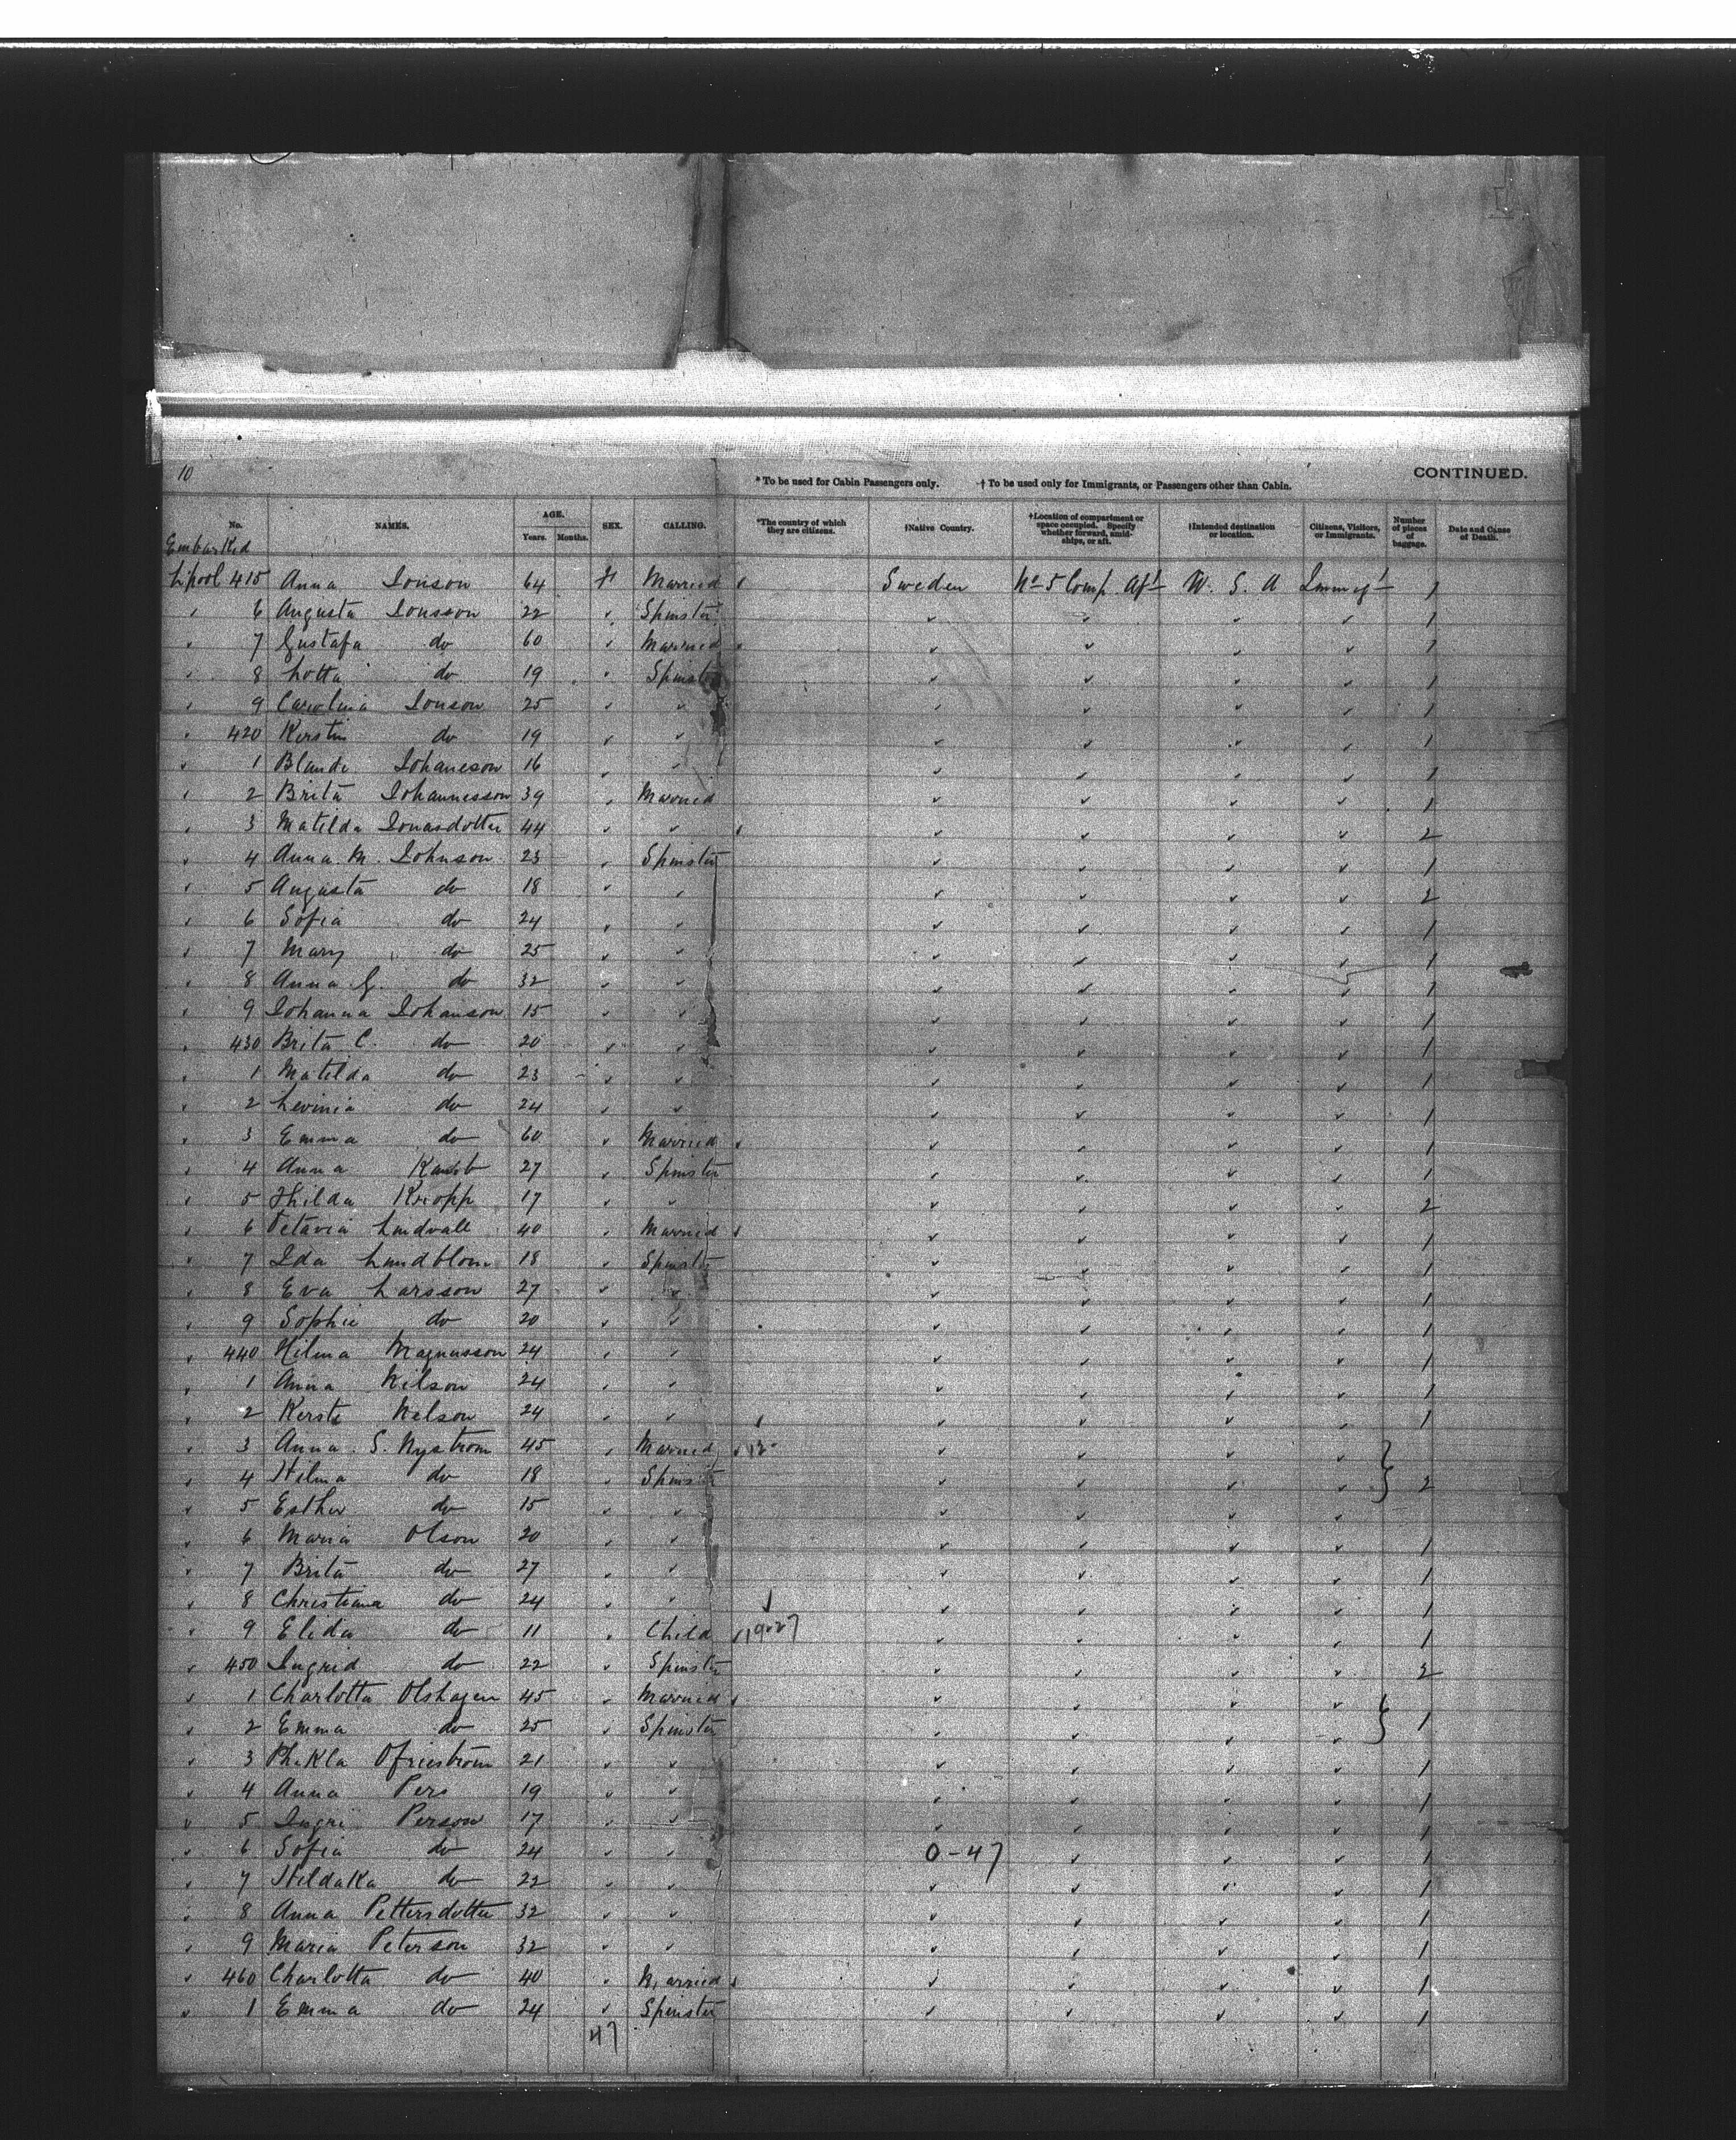 10
* To be used for Cabin Passengers only. † To be used only for Immigrants, or Passengers other than Cabin. CONTINUED.
No. NAMES. AGE. Years. Months. SEX. CALLING. *The country of which they are citizens. †Native Country. †Location of compartment or space occupied. Specify whether forward, amidships, or aft. †Intended destination or location. Citizens, Visitors, or Immigrants. Number of pieces of baggage. Date and Cause of Death.
Embarked
L'pool 415 Anna Jonson 64 F Married Sweden No 5 Comp. Aft U. S. A Immigt 1
6 Augusta Jonsson 22 Spinster 1
7 Gustafa do 60 Married 1
8 Lotta do 19 Spinster 1
9 Carolina Jonson 25 1
420 Kerstin do 19 1
1 Blande Johaneson 16 1
2 Brita Johannesson 39 Married 1
3 Matilda Jonasdotter 44 2
4 Anna M. Johnson 23 Spinster 1
5 Augusta do 18 2
6 Sofia do 24 1
7 Mary do 25 1
8 Anna G. do 32 1
9 Johanna Johanson 15 1
430 Brita C. do 20 1
1 Matilda do 23 1
2 Levinia do 24 1
3 Emma do 60 Married 1
4 Anna 27 Spinster 1
5 Thilda Kropp 17 2
6 Octavia Lindvall 40 Married 1
7 Ida Lundblom 18 Spinster 1
8 Eva Larsson 27 1
9 Sophie do 20 1
440 Hilma Magnusson 24 1
1 Anna Nilson 24 1
2 Kersti Nelson 24 1
3 Anna S. Nystrom 45 Married 12
4 Hilma do 18 Spinster 2
5 Esther do 15
6 Maria Olson 20 1
7 Brita do 27 1
8 Christiana do 24 1
9 Elida do 11 Child 1
450 Ingrid do 22 Spinster 2
1 Charlotta Olshagen 45 Married
2 Emma do 25 Spinster 1
3 Thekla Ofriestrom 21 1
4 Anna Pers 19 1
5 Ingri Person 17 1
6 Sofia do 24 0-47 1
7 Hildaka do 22 1
8 Anna Pettersdotter 32 1
9 Maria Peterson 32 1
460 Charlotta do 40 Married 1
1 Emma do 24 Spinster 1
47